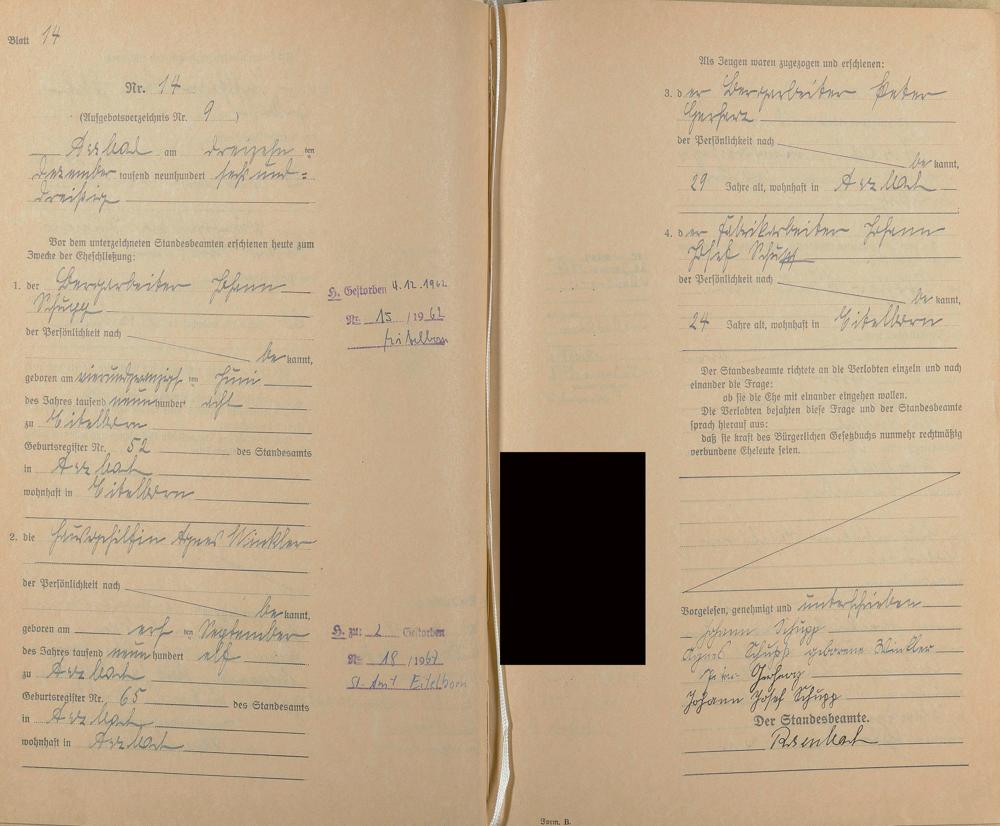 Blatt 14
Nr. 14
(Aufgebotsverzeichnis Nr. 9 )
Arzbach am dreizehn ten
Dezember tausend neunhundert sechsund=
dreißig
Vor dem unterzeichneten Standesbeamten erschienen heute zum
Zwecke der Eheschließung:
1. der Bergarbeiter Johann
Schupp
der Persönlichkeit nach
be kannt,
geboren am vierundzwanzigs ten Juni
des Jahres tausend neunhundert acht
zu Eitelborn
Geburtsregister Nr. 52 des Standesamts
in Arzbach
wohnhaft in Eitelborn
2. die Hausgehilfin Agnes Winkler
der Persönlichkeit nach
be kannt,
geboren am ersten September
des Jahres tausend neunhundert elf
zu Arzbach
Geburtsregister Nr. 65 des Standesamts
in Arzbach
wohnhaft in Arzbach
H. Gestorben 4.12.1962
Nr. 15 /1962
Eitelborn
H. zu: 2 Gestorben
Nr. 18 /1967
St. Amt Eitelborn
Als Zeugen waren zugezogen und erschienen:
3. der Bergarbeiter Peter
Gerharz
der Persönlichkeit nach
be kannt,
29 Jahre alt, wohnhaft in Arzbach
4. der Fabrikarbeiter Johann
Josef Schupp
der Persönlichkeit nach
be kannt,
24 Jahre alt, wohnhaft in Eitelborn
Der Standesbeamte richtete an die Verlobten einzeln und nach
einander die Frage:
ob sie die Ehe mit einander eingehen wollen.
Die Verlobten bejahten diese Frage und der Standesbeamte
sprach hierauf aus:
daß sie kraft des Bürgerlichen Gesetzbuchs nunmehr rechtmäßig
verbundene Eheleute seien.
Vorgelesen, genehmigt und unterschrieben
Johann Schupp
Agnes Schupp geborene Winkler
Peter Gerharz
Johann Josef Schupp
Der Standesbeamte.
Rosenbach
Form. B.